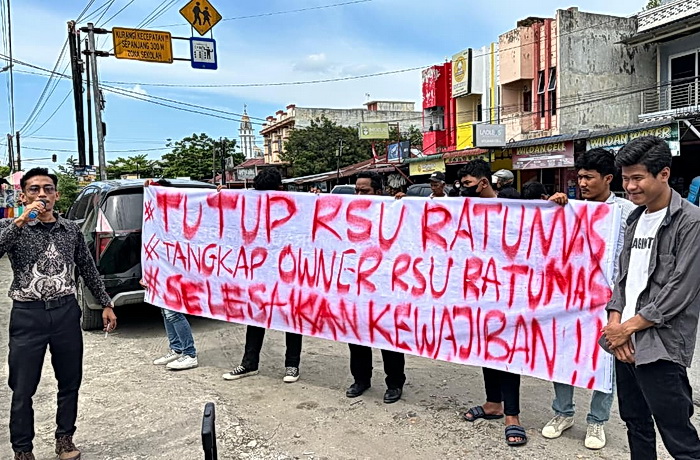 KURANGI KECEPATAN
SEPANJANG 300 M
ZONA SEKOLAH
#TUTUP RSU RATUMAS
#TANGKAP OWNER RSU RATUMAS
#SELESAIKAN KEWAJIBAN !!
WILDAN CELL